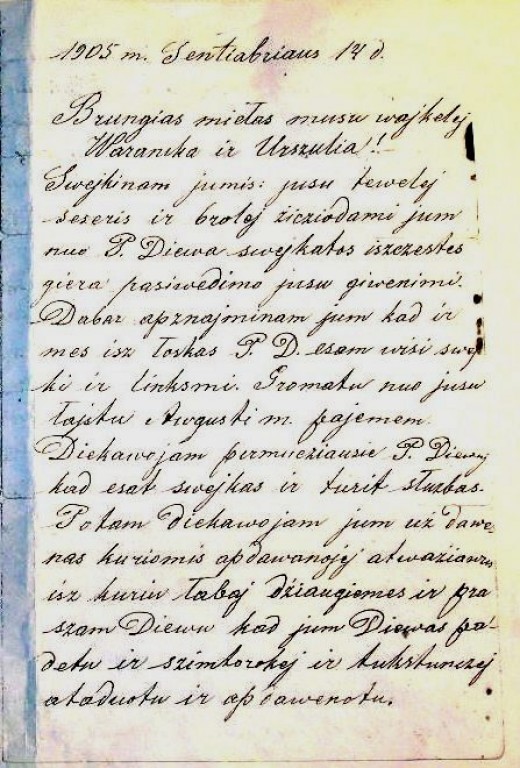 1905 m. Sentiabriaus 14 d.
Brungias miełas musu wajkelej
Waranıka ir Urszulia!!
Swejkinam jumis: jusu tewelej
seseris ir brolej żicziodami jum
nuo P. Diewa swejkatos iszczestes
giera pasiwedimo jusu giwenimi.
Dabar apznajminam jum kad ir
mes isz łoskas P. D. esam wisi swej
ki ir linksmi. Gromatu nuo jusu
łajstu Awgusti m. pajemem.
Diekawojam permucziausie P. Diewuj
kad esat swejkas ir turit słuzbas.
Potam diekawojam jum uż dawe-
nas kuriomis apdawanojej atważiawus
isz kuriu łabaj dżiaugiemes ir pra
szam Diewu kad jum Diewas pa-
detu ir szimtorokej ir tukstunczej
ataduotu ir apdawenotu.